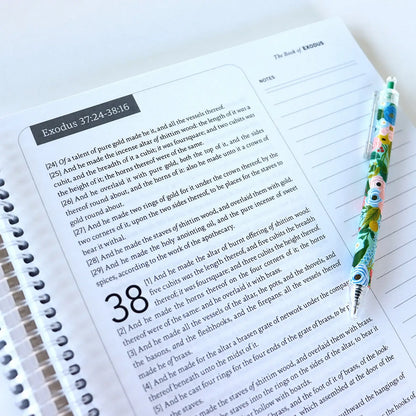 The Book of EXODUS
NOTES
Exodus 37:24-38:16
[24] Of a talent of pure gold made he it, and all the vessels thereof.
[25] And he made the incense altar of shittim wood: the length of it was a
cubit, and the breadth of it a cubit; it was foursquare; and two cubits was
the height of it; the horns thereof were of the same.
[26] And he overlaid it with pure gold, both the top of it, and the sides
thereof round about, and the horns of it: also he made unto it a crown of
gold round about.
[27] And he made two rings of gold for it under the crown thereof, by the
two corners of it, upon the two sides thereof, to be places for the staves to
bear it withal.
[28] And he made the staves of shittim wood, and overlaid them with gold.
[29] And he made the holy anointing oil, and the pure incense of sweet
spices, according to the work of the apothecary.
38
[1] And he made the altar of burnt offering of shittim wood:
five cubits was the length thereof, and five cubits the breadth
thereof; it was foursquare; and three cubits the height thereof.
[2] And he made the horns thereof on the four corners of it; the horns
thereof were of the same: and he overlaid it with brass.
[3] And he made all the vessels of the altar, the pots, and the shovels, and
the basons, and the fleshhooks, and the firepans: all the vessels thereof
made he of brass.
[4] And he made for the altar a brasen grate of network under the compass
thereof beneath unto the midst of it.
[5] And he cast four rings for the four ends of the grate of brass, to be
the staves.
[6] And he made the staves of shittim wood, and overlaid them with brass.
And he put the staves into the rings on the sides of the altar, to bear it
hollow with boards.
brass, and the foot of it of brass, of the look-
which assembled at the door of the
the hangings of